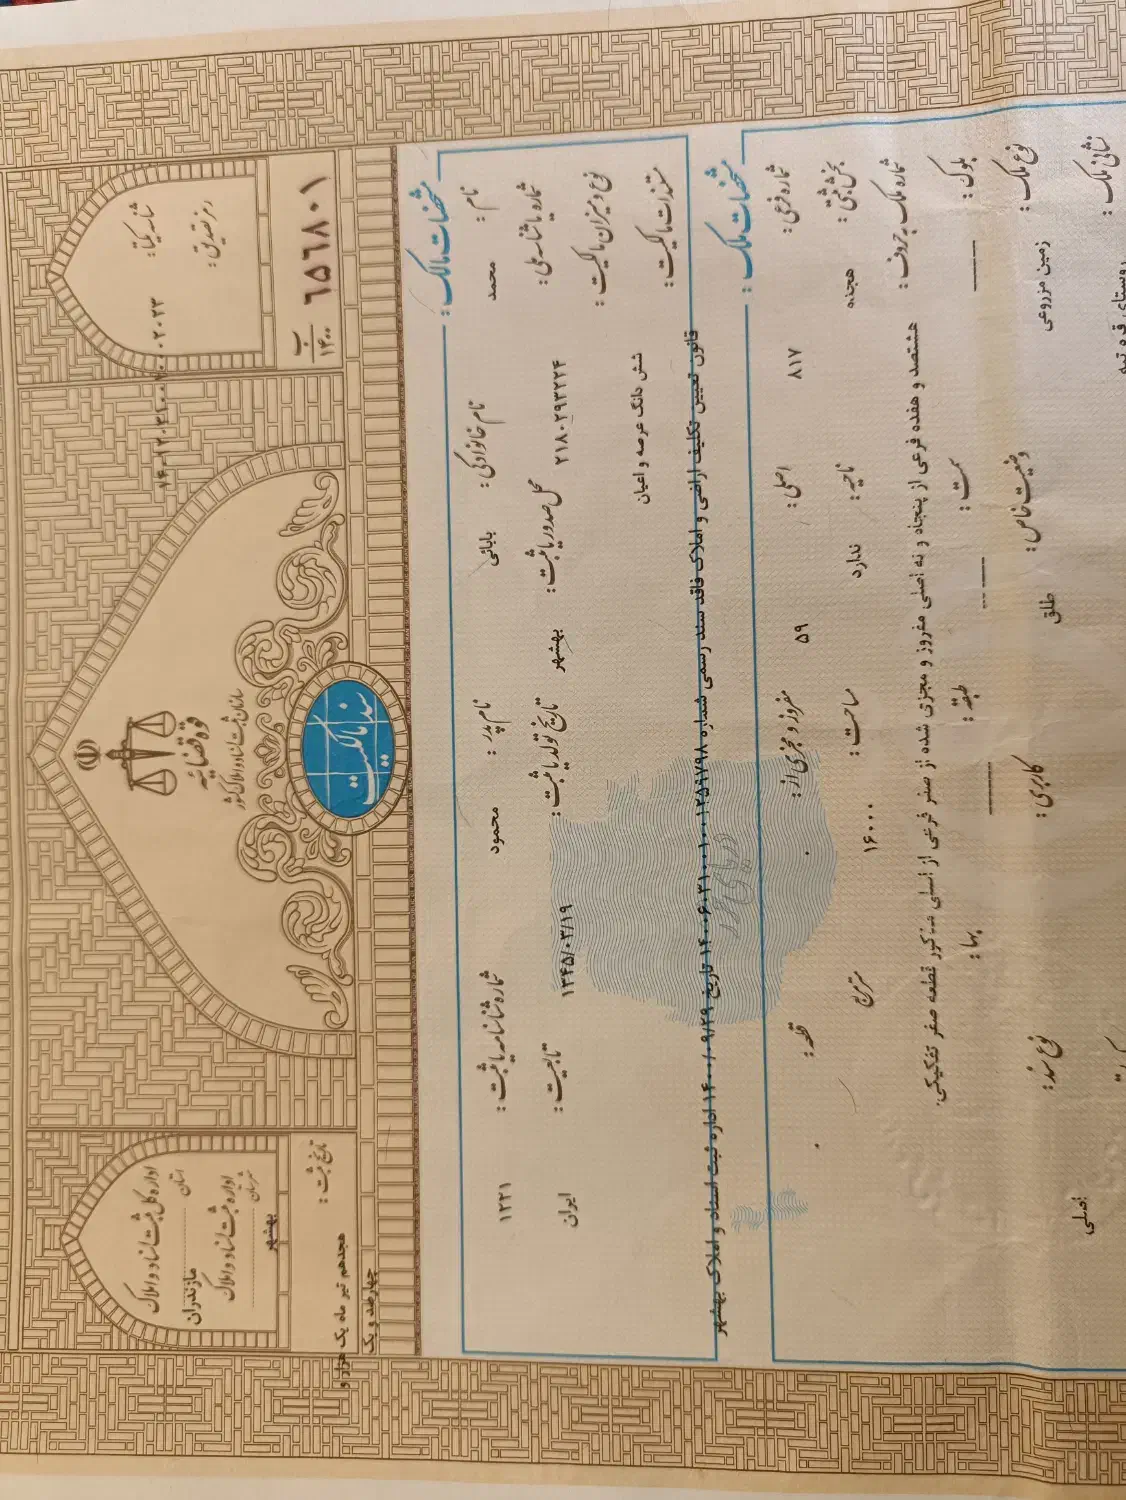 قوه قضائیه
سازمان ثبت اسناد و املاک کشور
سند مالکیت
اداره کل ثبت اسناد و املاک
استان مازندران
اداره ثبت اسناد و املاک
شهرستان بهشهر
تاریخ ثبت:
هجدهم تیر ماه یک هزار و
چهارصد و یک
شناسه یکتا:
رمز تصدیق:
ب
۱۴۰۰
۶۵۶۸۰۱
مشخصات مالک:
نام: محمد نام خانوادگی: بابائی نام پدر: محمود شماره شناسنامه یا ثبت: ۱۲۲۱
شماره یا شناسه ملی: ۲۱۸۰۲۹۳۲۲۴ محل صدور یا ثبت: بهشهر تاریخ تولد یا ثبت: ۱۳۴۵/۰۳/۱۹ تابعیت: ایران
نوع و میزان مالکیت: شش دانگ عرصه و اعیان
مستندات مالکیت: قانون تعیین تکلیف اراضی و املاک فاقد سند رسمی شماره ۱۴۰۰۶۰۳۱۰۰۱۰۰۱۲۵۹۷۹۸ تاریخ ۱۴۰۰/۰۹/۲۹ اداره ثبت اسناد و املاک بهشهر
مشخصات ملک:
شماره فرعی: ۸۱۷ اصلی: ۵۹ مفروز و مجزی از: ۰ قطعه: ۰
بخش ثبتی: هجده ناحیه: ندارد مساحت: ۱۶۰۰۰ مترمربع
شماره ملک به حروف: هشتصد و هفده فرعی از پنجاه و نه اصلی مفروز و مجزی شده از صفر فرعی از اصلی مذکور قطعه صفر تفکیکی.
بلوک: ---- سمت: ---- طبقه: ---- بها:
نوع ملک: زمین مزروعی وضعیت خاص: طلق کاربری: نوع سند: اصلی
نشانی ملک: روستای قره تپه
دریای خزر